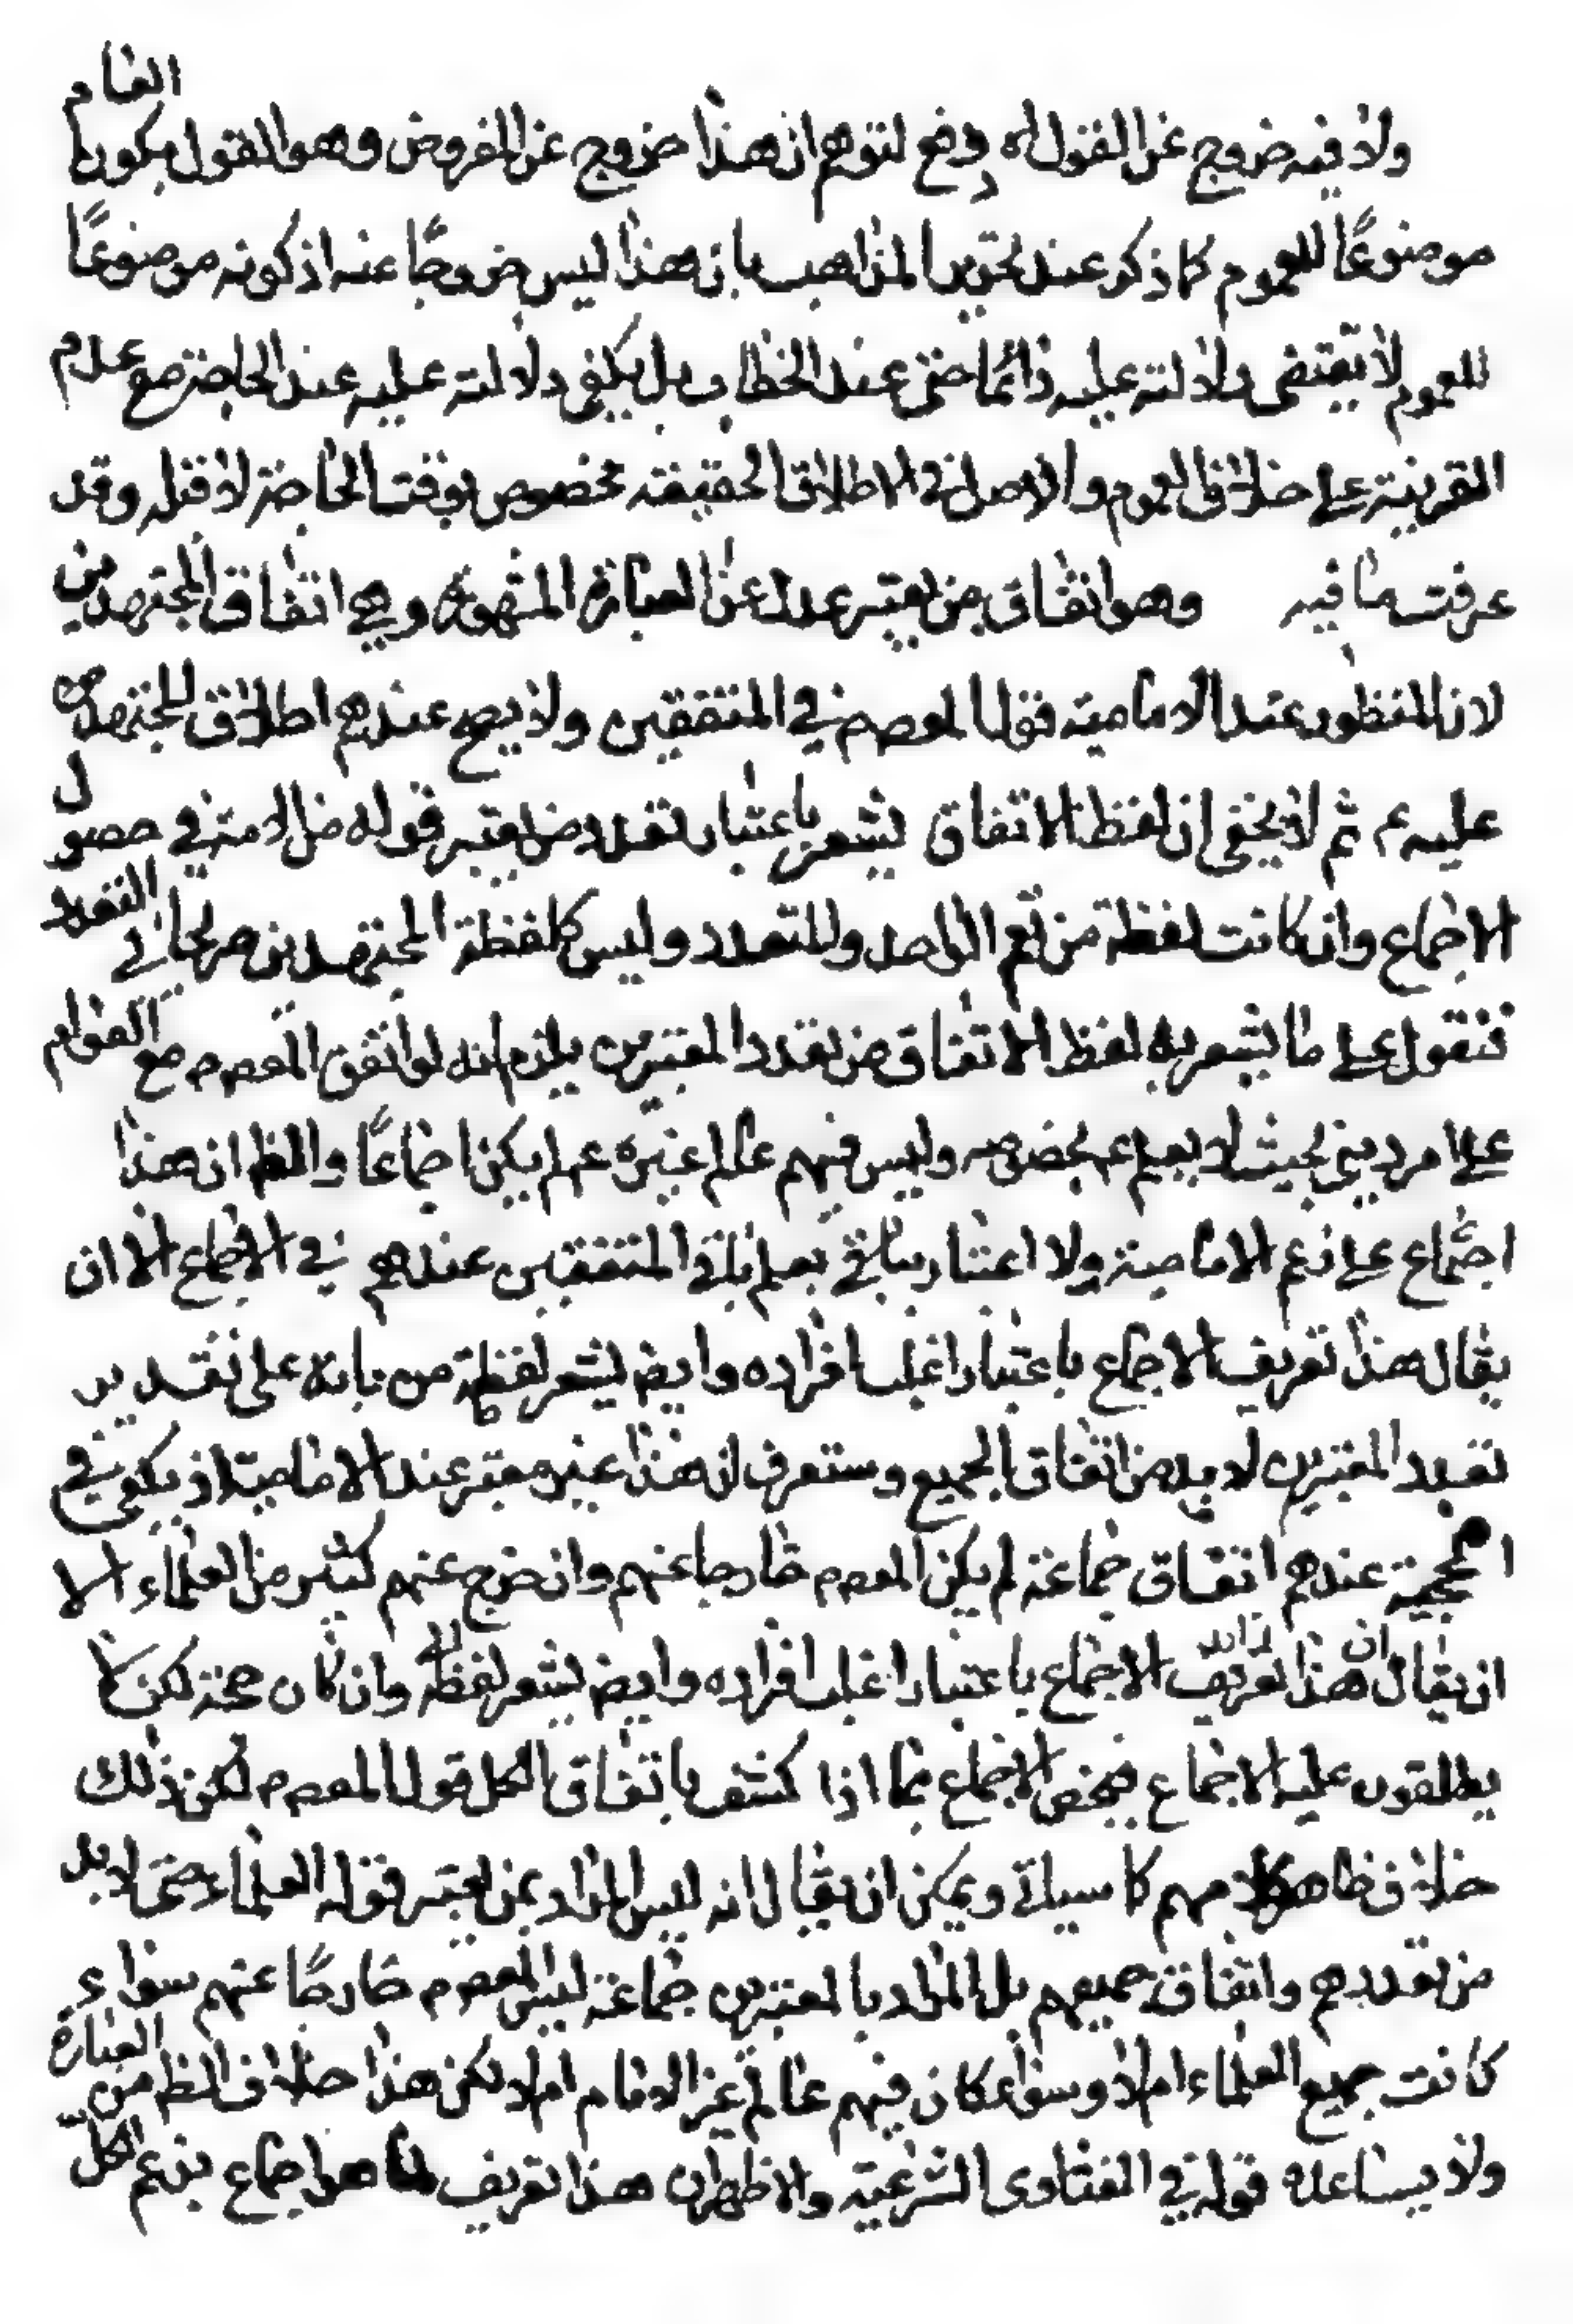 ولا فيه خروج عن القول اه دفع لتوهم ان هذا خروج عن المفروض وهو القول بكون العام
موضوعًا للعموم كما ذكر عند تحرير المذاهب بان هذا ليس خروجًا عنه اذ كونه موضوعًا
للعموم لا يقتضى دلالته عليه دائما حتى عند الخطاب بل يكفى دلالته عليه عند الحاجة مع عدم
القرينة على خلاف العموم والاصل فى الاطلاق الحقيقة مخصوص بوقت الحاجة لا قبله وقد
عرفت ما فيه وهو اتفاق من يعتبر عدل عن العبارة المشهورة وهى اتفاق المجتهدين
لان المنظور عند الامامية قول المعصوم في المتفقين ولا يصح عندهم اطلاق المجتهد
عليه ع ثم لا يخفى ان لفظ الاتفاق يشعر باعتبار تعدد من يعتبر قوله من الامة في حصول
الاجماع وان كانت لفظة من تعم الواحد والمتعدد وليس كلفظة المجتهدين صريحا في التعدد
فنقول على ما يشعر به لفظ الاتفاق من تعدد المعتبرين يلزم انه لو اتفق المعصوم مع العوام
على امر دينى بحيث لا يعلم ع بخصوصه وليس فيهم عالم غيره ع لم يكن اجماعًا والظ ان هذا
اجماع على زعم الامامية ولا اعتبار بباقي بعلم باقي المتفقين عندهم في الاجماع الا ان
يقال هذا تعريف الاجماع باعتبار اغلب افراده وايض يشعر لفظة من بانه على تقدير
تعدد المعتبرين لا بد من اتفاق الجميع وستعرف ان هذا غير معتبر عند الامامية اذ يكفى في
الحجية عندهم اتفاق جماعة لم يكن المعصوم خارجا عنهم وان خرج عنهم كثير من العلماء الا
ان يقال ان هذا تعريف الاجماع باعتبار اغلب افراده وايض يشعر لفظه وان كان حجة لكن لا
يطلقون عليه الاجماع فيخص الاجماع بما اذا كشف باتفاق الكل قول المعصوم لكن ذلك
خلاف ظاهر كلامهم كما سياتي ويمكن ان يقال انه ليس المراد بمن يعتبر قوله العلماء حتى لا بد
من تعددهم واتفاق جميعهم بل المراد بالمعتبرين جماعة ليس المعصوم خارجًا عنهم سواء
كانت جميع العلماء ام لا وسواء كان فيهم عالم غير الامام ام لا لكن هذا خلاف الظ من العبارة
ولا يساعده قوله في الفتاوى الشرعية والاظهر ان هذا تعريف لما هو اجماع بزعم الكل